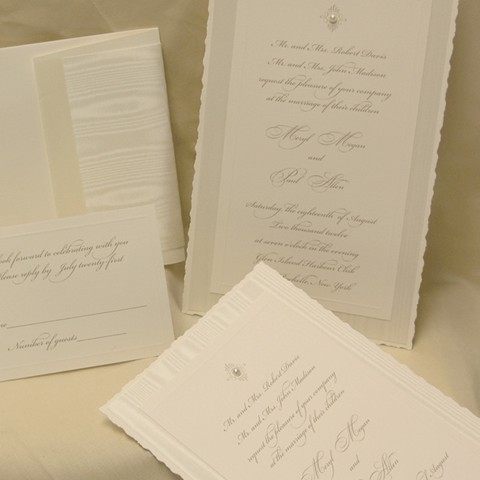 Mr. and Mrs. Robert Davis
Mr. and Mrs. John Madison
request the pleasure of your company
at the marriage of their children
Meryl Megan
and
Paul Allen
Saturday, the eighteenth of August
Two thousand twelve
at seven o'clock in the evening
Glen Island Harbour Club
Rochelle, New York
forward to celebrating with you
Please reply by July twenty first
Number of guests
Mr. and Mrs. Robert Davis
Mr. and Mrs. John Madison
request the pleasure of your company
at the marriage of their children
Meryl Megan
and
Allen
August